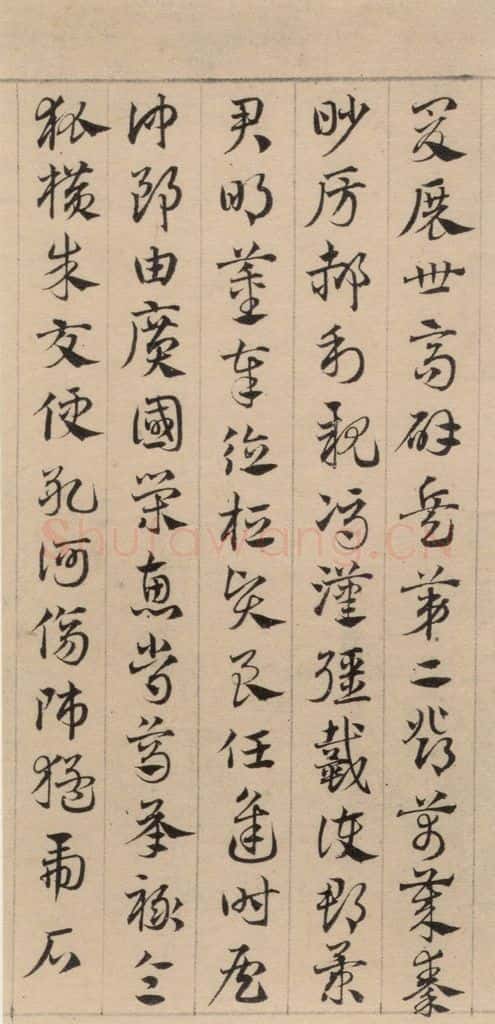 爰展世高辟兵第二鄧萬歲秦
眇房郝利親馮漢彊戴護郡景
君明董奉德桓賢良任逢時侯
仲郎由廣國榮惠常烏承祿令
狐橫朱交便孔何傷師猛虎石
Shufawang.CN